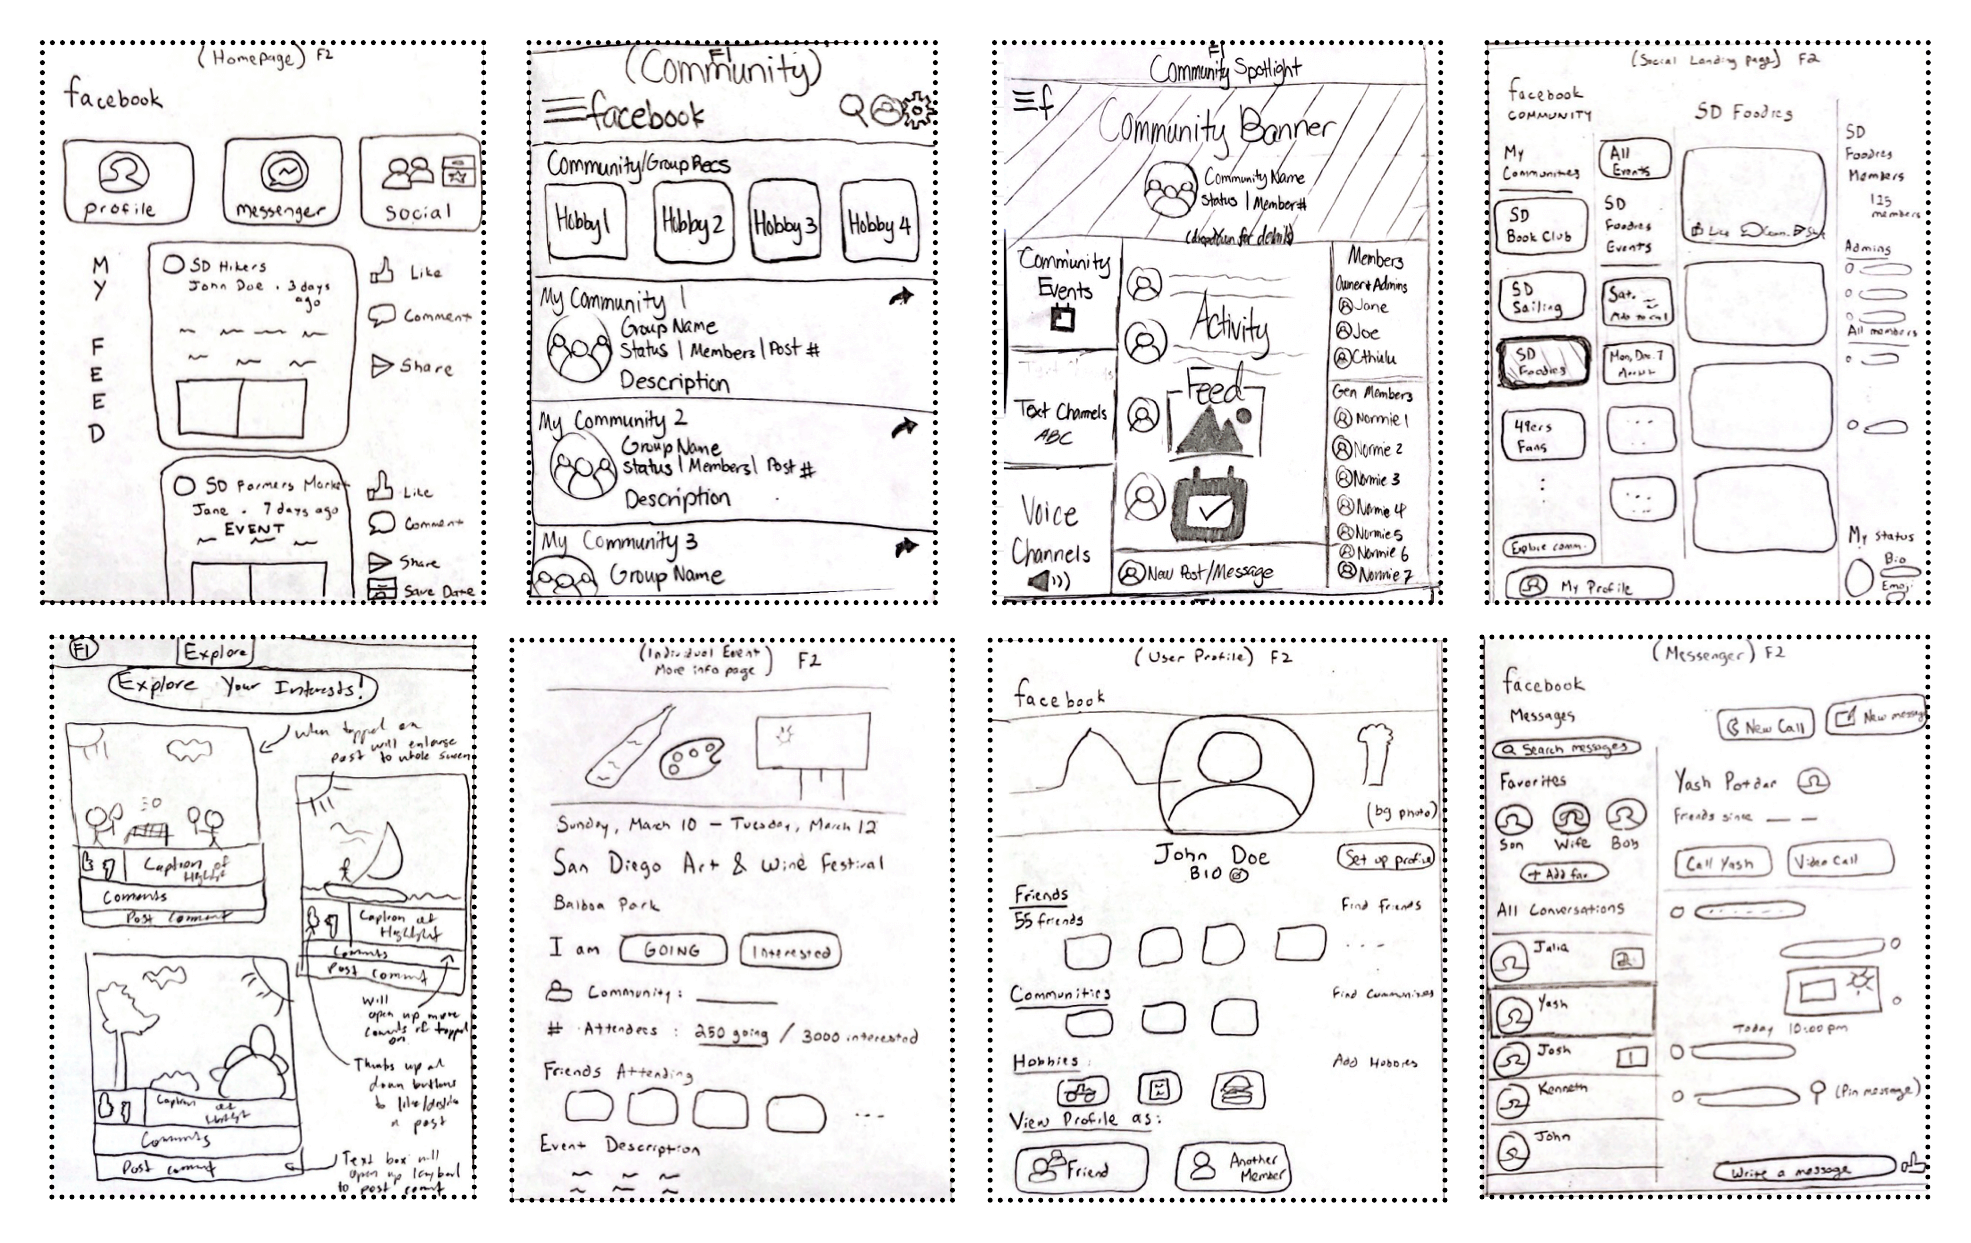 (Homepage) F2
facebook
profile
messenger
social
MY FEED
SD Hikers
John Doe . 3 days ago
Like
Comment
Share
SD Farmers Market
Jane . 7 days ago
EVENT
Like
Comment
Share
Save Date
F1
(Community)
facebook
Community/Group Recs
Hobby 1
Hobby 2
Hobby 3
Hobby 4
My Community 1
Group Name
Status | Members | Post #
Description
My Community 2
Group Name
Status | Members | Post #
Description
My Community 3
Group Name
F1
Community Spotlight
f
Community Banner
Community Name
Status | Member #
(dropdown for details)
Community Events
Text Channels
ABC
Voice Channels
Activity
Feed
New Post/Message
Members
Owner + Admins
Jane
Joe
Cthulu
Gen Members
Normie 1
Normie 2
Normie 3
Normie 4
Normie 5
Normie 6
Normie 7
(Social Landing Page) F2
facebook
COMMUNITY
My Communities
SD Book Club
SD Sailing
SD Foodies
49ers Fans
Explore comm.
My Profile
All Events
SD Foodies Events
Sat.
Mon, Dec. 7
SD Foodies
Like
Com.
SD Foodies Members
125 members
Admins
All members
My Status
Bio
Emoji
F1
Explore
Explore Your Interests!
when tapped on
post will enlarge
to whole screen
Caption of Highlight
Comments
Post comment
Caption of Highlight
Comments
Post comment
Will open up more
comments if tapped on
Thumbs up and
down buttons
to like/dislike
a post
Caption of Highlight
Comments
Post comment
Text box will
open up keyboard
to post comment
(Individual Event)
More info page
F2
Sunday, March 10 – Tuesday, March 12
San Diego Art & Wine Festival
Balboa Park
I am GOING Interested
Community:
# Attendees : 250 going / 3000 interested
Friends Attending
Event Description
(User Profile) F2
facebook
(bg photo)
John Doe
BIO
Set up profile
Friends
55 friends
Find Friends
Communities
Find Communities
Hobbies:
Add Hobbies
View Profile as:
Friend
Another Member
(Messenger) F2
facebook
Messages
New Call
New message
Search messages
Favorites
Son
Wife
+ Add fav
All Conversations
Julia
2
Yash
Josh
1
Kenneth
John
Yash Potdar
Friends since
Call Yash
Video Call
Today 10:00 pm
(Pin message)
Write a message